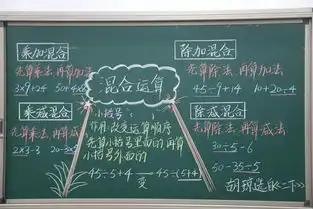 乘加混合
先算乘法 再算加法
3×9+24
混合运算
除加混合
先算除法 再算加法
45÷9+14 10+20÷4
乘减混合
先算乘法 再算减法
2×3-3
小括号:
作用:改变运算顺序
先算小括号里面的 再算
小括号外面的
45÷5+4 变 45÷(5+4)
除减混合
先算除法 再算减法
30÷5-6
50-35÷5
选自《二下》